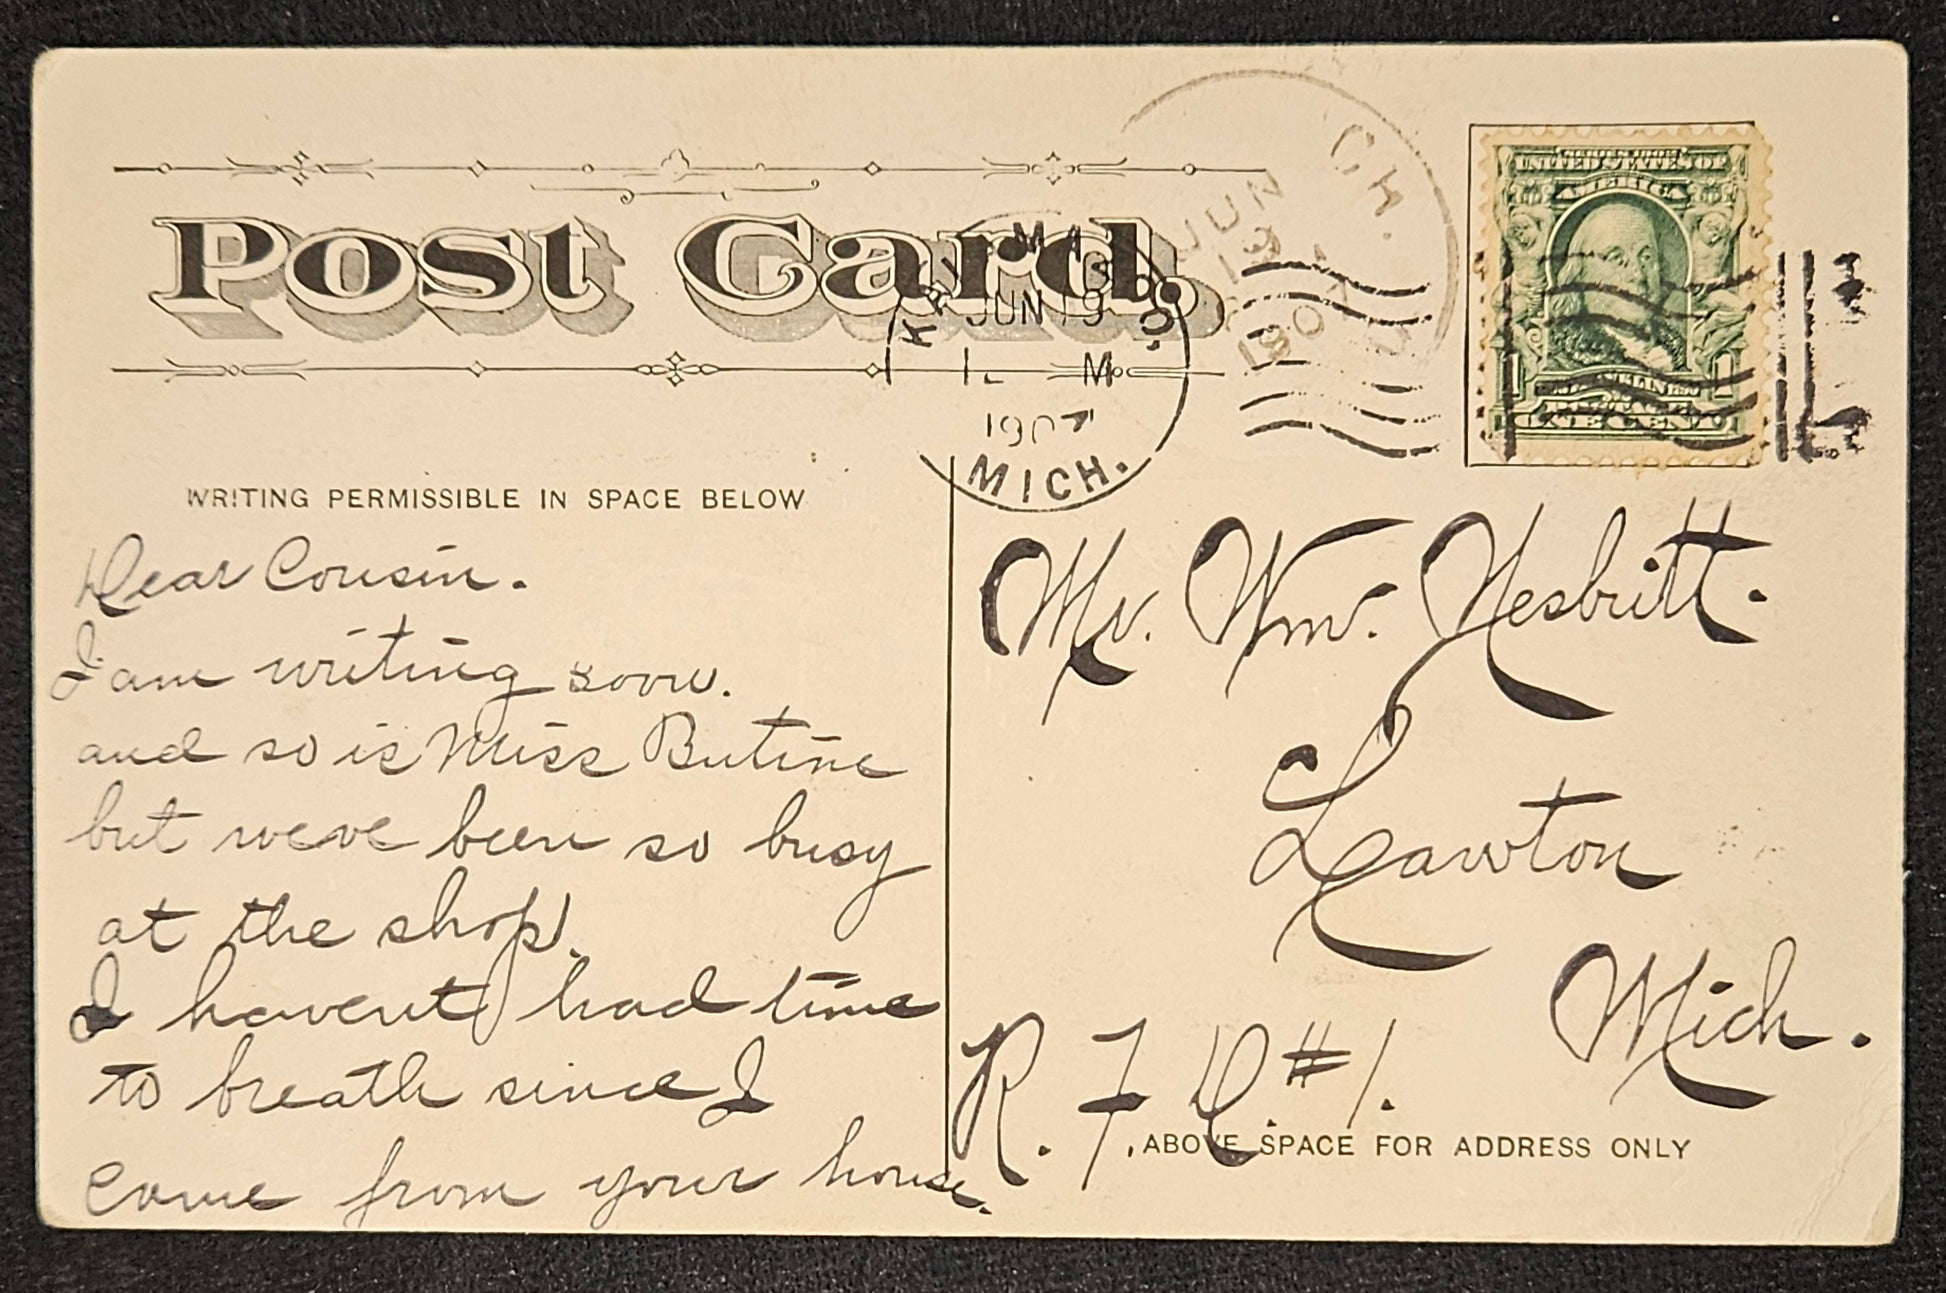 Post Card.
CH.
JUN
19
1907
KALAMAZOO.
JUN 19
M
1907
MICH.
UNITED STATES OF
AMERICA
1 1
ONE CENT
WRITING PERMISSIBLE IN SPACE BELOW
Dear Cousin.
I am writing soon.
and so is Miss Butine
but weve been so busy
at the shop.
I havent had time
to breath since I
come from your house.
Mr. Wm. Nesbritt.
Lawton
Mich.
R. F. D. #1.
ABOVE SPACE FOR ADDRESS ONLY